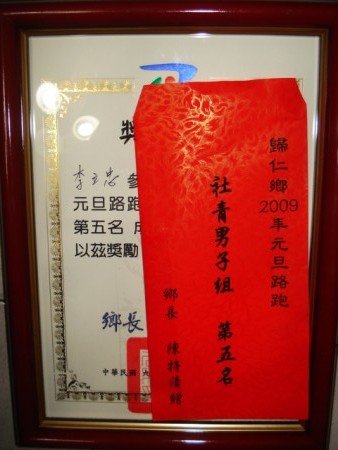 歸仁鄉2009年元旦路跑
社青男子組 第五名
鄉長
獎
參
元旦路跑
第五名 成
以茲獎勵
鄉長
中華民國